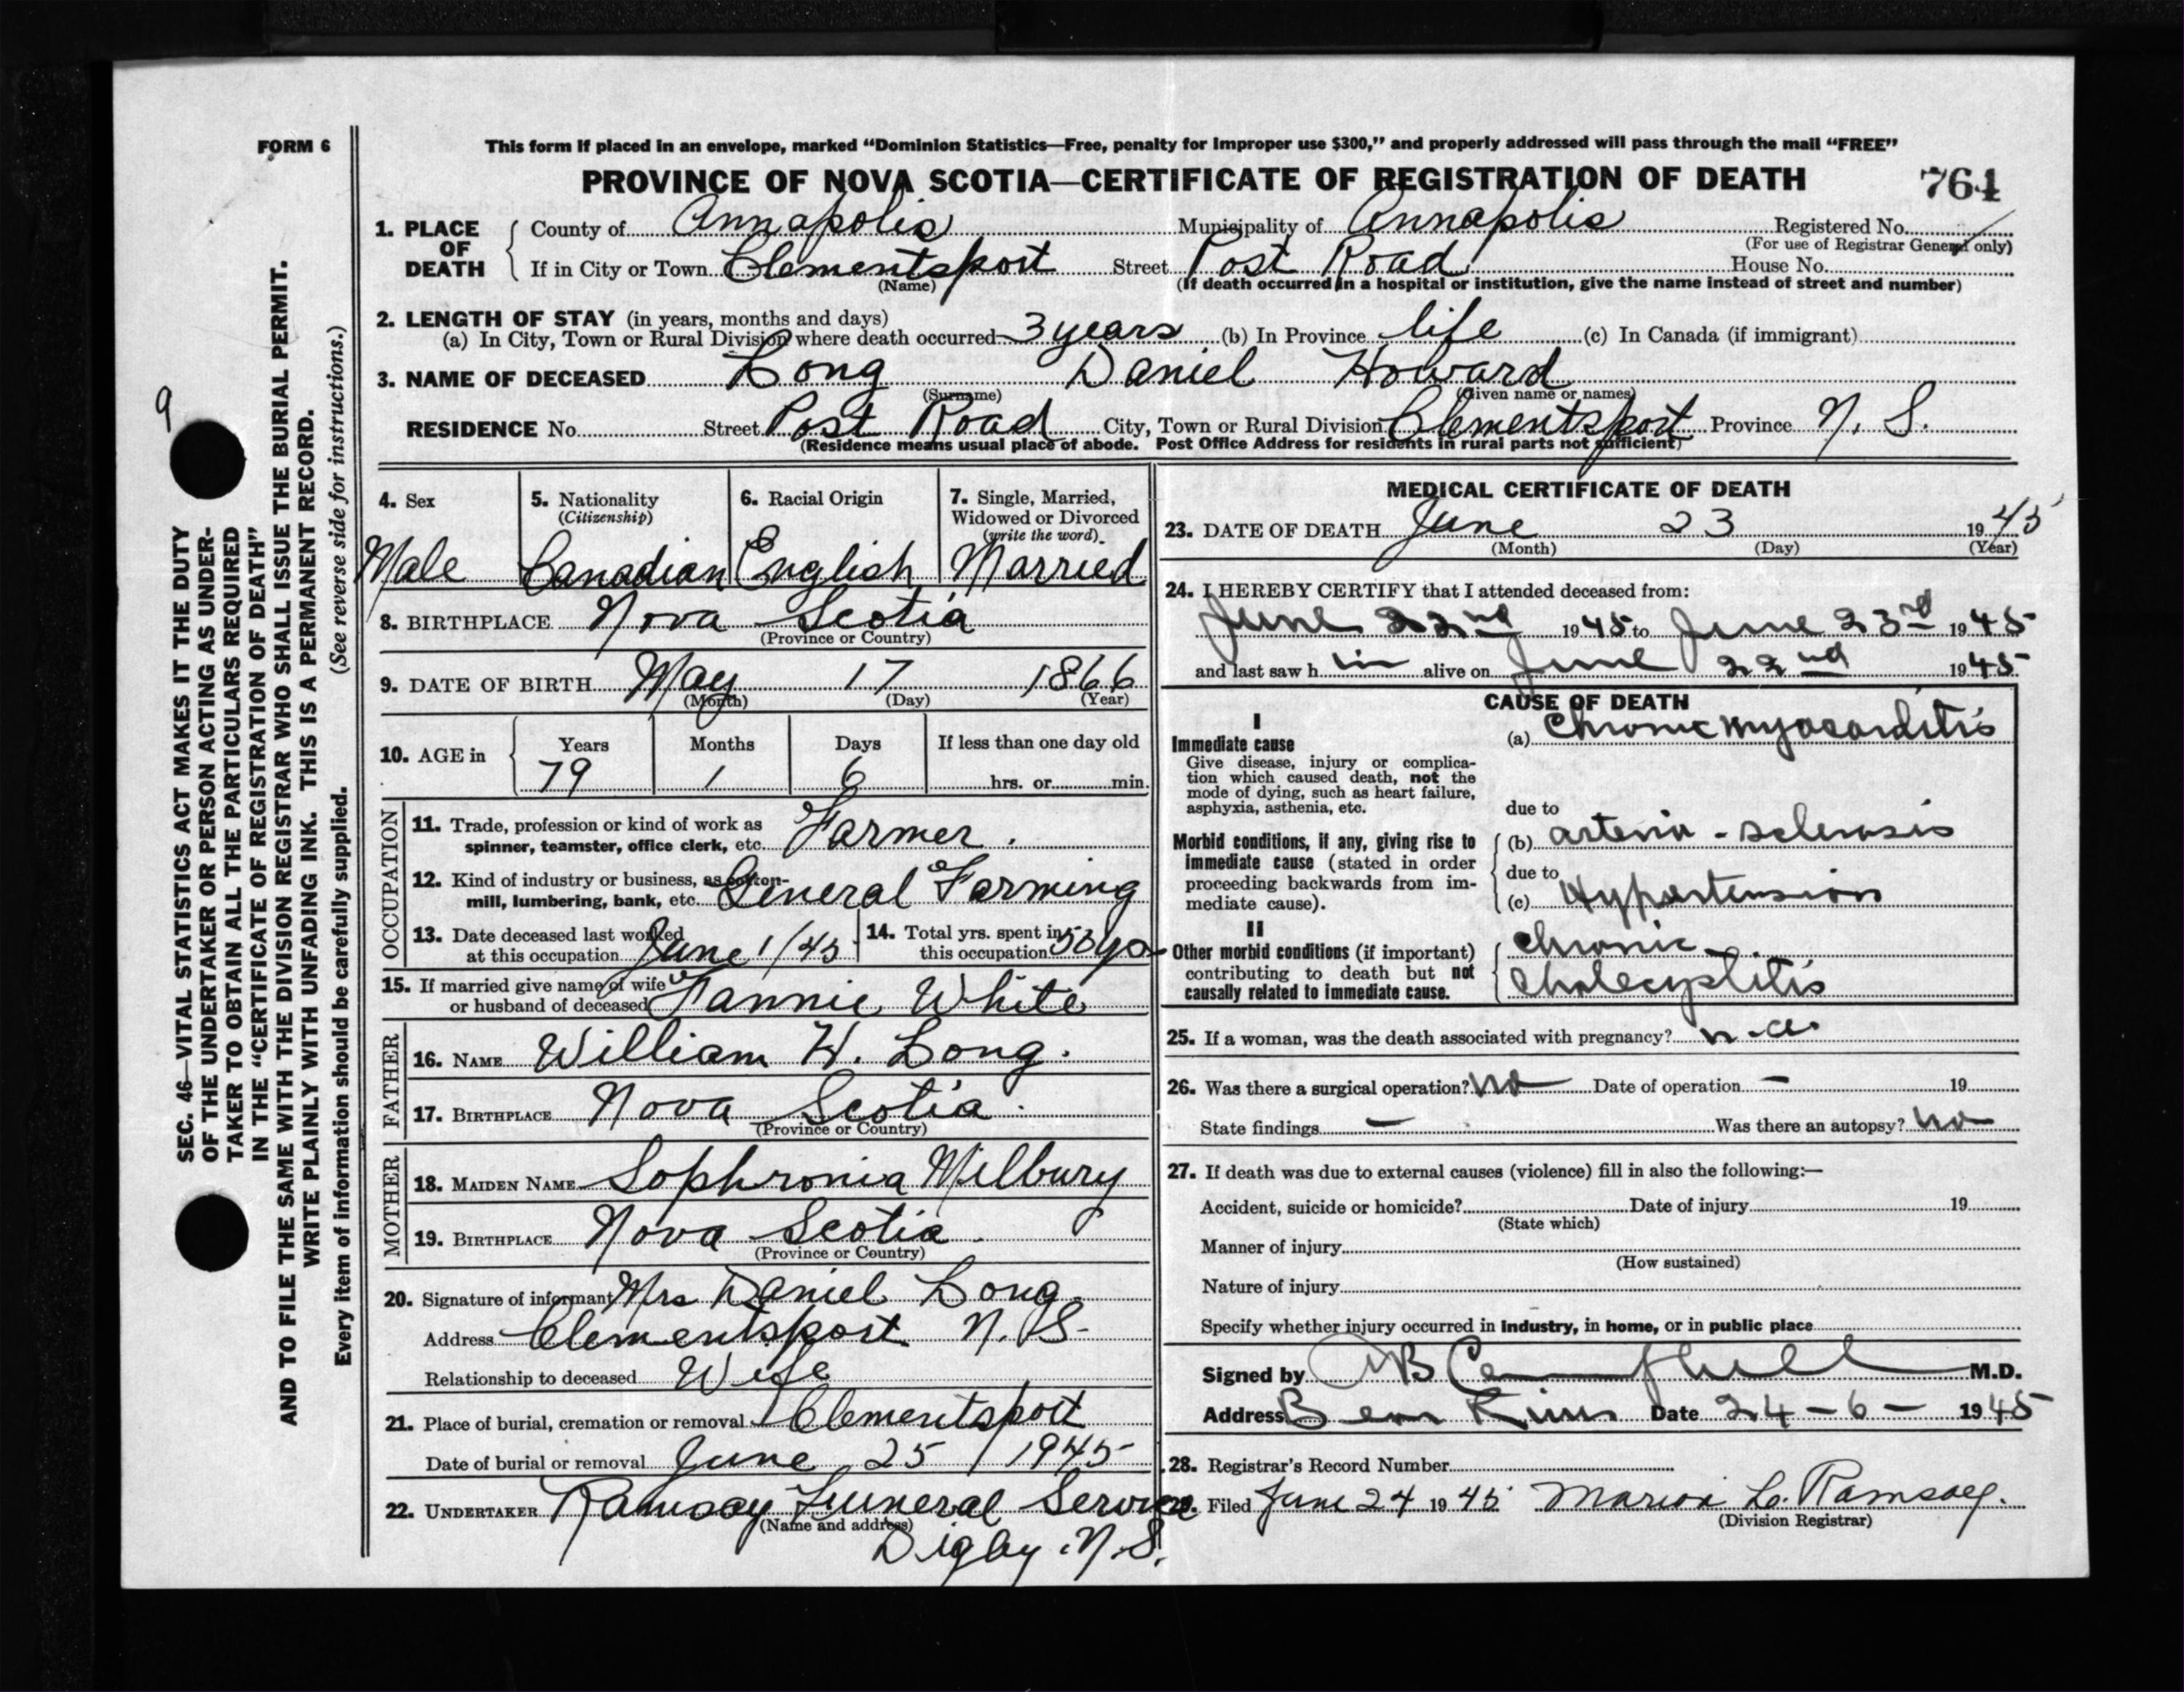 FORM 6
This form if placed in an envelope, marked “Dominion Statistics—Free, penalty for improper use $300,” and properly addressed will pass through the mail “FREE”
PROVINCE OF NOVA SCOTIA—CERTIFICATE OF REGISTRATION OF DEATH
764
1. PLACE OF DEATH
County of Annapolis Municipality of Annapolis Registered No.
(For use of Registrar General only)
If in City or Town Clementsport Street Post Road House No.
(Name) (If death occurred in a hospital or institution, give the name instead of street and number)
2. LENGTH OF STAY (in years, months and days)
(a) In City, Town or Rural Division where death occurred 3 years (b) In Province life (c) In Canada (if immigrant)
3. NAME OF DECEASED Long Daniel Howard
(Surname) (Given name or names)
RESIDENCE No. Street Post Road City, Town or Rural Division Clementsport Province N. S.
(Residence means usual place of abode. Post Office Address for residents in rural parts not sufficient)
4. Sex
Male
5. Nationality
(Citizenship)
Canadian
6. Racial Origin
English
7. Single, Married,
Widowed or Divorced
(write the word)
Married
8. BIRTHPLACE Nova Scotia
(Province or Country)
9. DATE OF BIRTH May 17 1866
(Month) (Day) (Year)
10. AGE in
Years Months Days If less than one day old
79 1 6 hrs. or min.
OCCUPATION
11. Trade, profession or kind of work as
spinner, teamster, office clerk, etc. Farmer.
12. Kind of industry or business, as cotton-
mill, lumbering, bank, etc. General Farming
13. Date deceased last worked
at this occupation June 1/45
14. Total yrs. spent in
this occupation 50 yrs
15. If married give name of wife
or husband of deceased Fannie White
FATHER
16. NAME William H. Long.
17. BIRTHPLACE Nova Scotia.
(Province or Country)
MOTHER
18. MAIDEN NAME Sophronia Milbury
19. BIRTHPLACE Nova Scotia.
(Province or Country)
20. Signature of informant Mrs Daniel Long.
Address Clementsport N. S.
Relationship to deceased Wife
21. Place of burial, cremation or removal Clementsport
Date of burial or removal June 25 / 1945
22. UNDERTAKER Ramsay Funeral Service
(Name and address)
Digby. N. S.
MEDICAL CERTIFICATE OF DEATH
23. DATE OF DEATH June 23 1945
(Month) (Day) (Year)
24. I HEREBY CERTIFY that I attended deceased from:
June 22nd 1945 to June 23rd 1945
and last saw h im alive on June 22nd 1945
CAUSE OF DEATH
I
Immediate cause
Give disease, injury or complica-
tion which caused death, not the
mode of dying, such as heart failure,
asphyxia, asthenia, etc.
(a) Chronic myocarditis
due to
Morbid conditions, if any, giving rise to
immediate cause (stated in order
proceeding backwards from im-
mediate cause).
(b) arterio-sclerosis
due to
(c) Hypertension
II
Other morbid conditions (if important)
contributing to death but not
causally related to immediate cause.
Chronic
Cholecystitis
25. If a woman, was the death associated with pregnancy? n.a.
26. Was there a surgical operation? no Date of operation – 19
State findings – Was there an autopsy? no
27. If death was due to external causes (violence) fill in also the following:—
Accident, suicide or homicide? Date of injury 19
(State which)
Manner of injury
(How sustained)
Nature of injury
Specify whether injury occurred in industry, in home, or in public place
Signed by B Campbell M.D.
Address Bear River Date 24-6- 1945
28. Registrar's Record Number
29. Filed June 24 1945 Marion L. Ramsay.
(Division Registrar)
9
SEC. 46—VITAL STATISTICS ACT MAKES IT THE DUTY
OF THE UNDERTAKER OR PERSON ACTING AS UNDER-
TAKER TO OBTAIN ALL THE PARTICULARS REQUIRED
IN THE “CERTIFICATE OF REGISTRATION OF DEATH”
AND TO FILE THE SAME WITH THE DIVISION REGISTRAR WHO SHALL ISSUE THE BURIAL PERMIT.
WRITE PLAINLY WITH UNFADING INK. THIS IS A PERMANENT RECORD.
Every item of information should be carefully supplied. (See reverse side for instructions.)